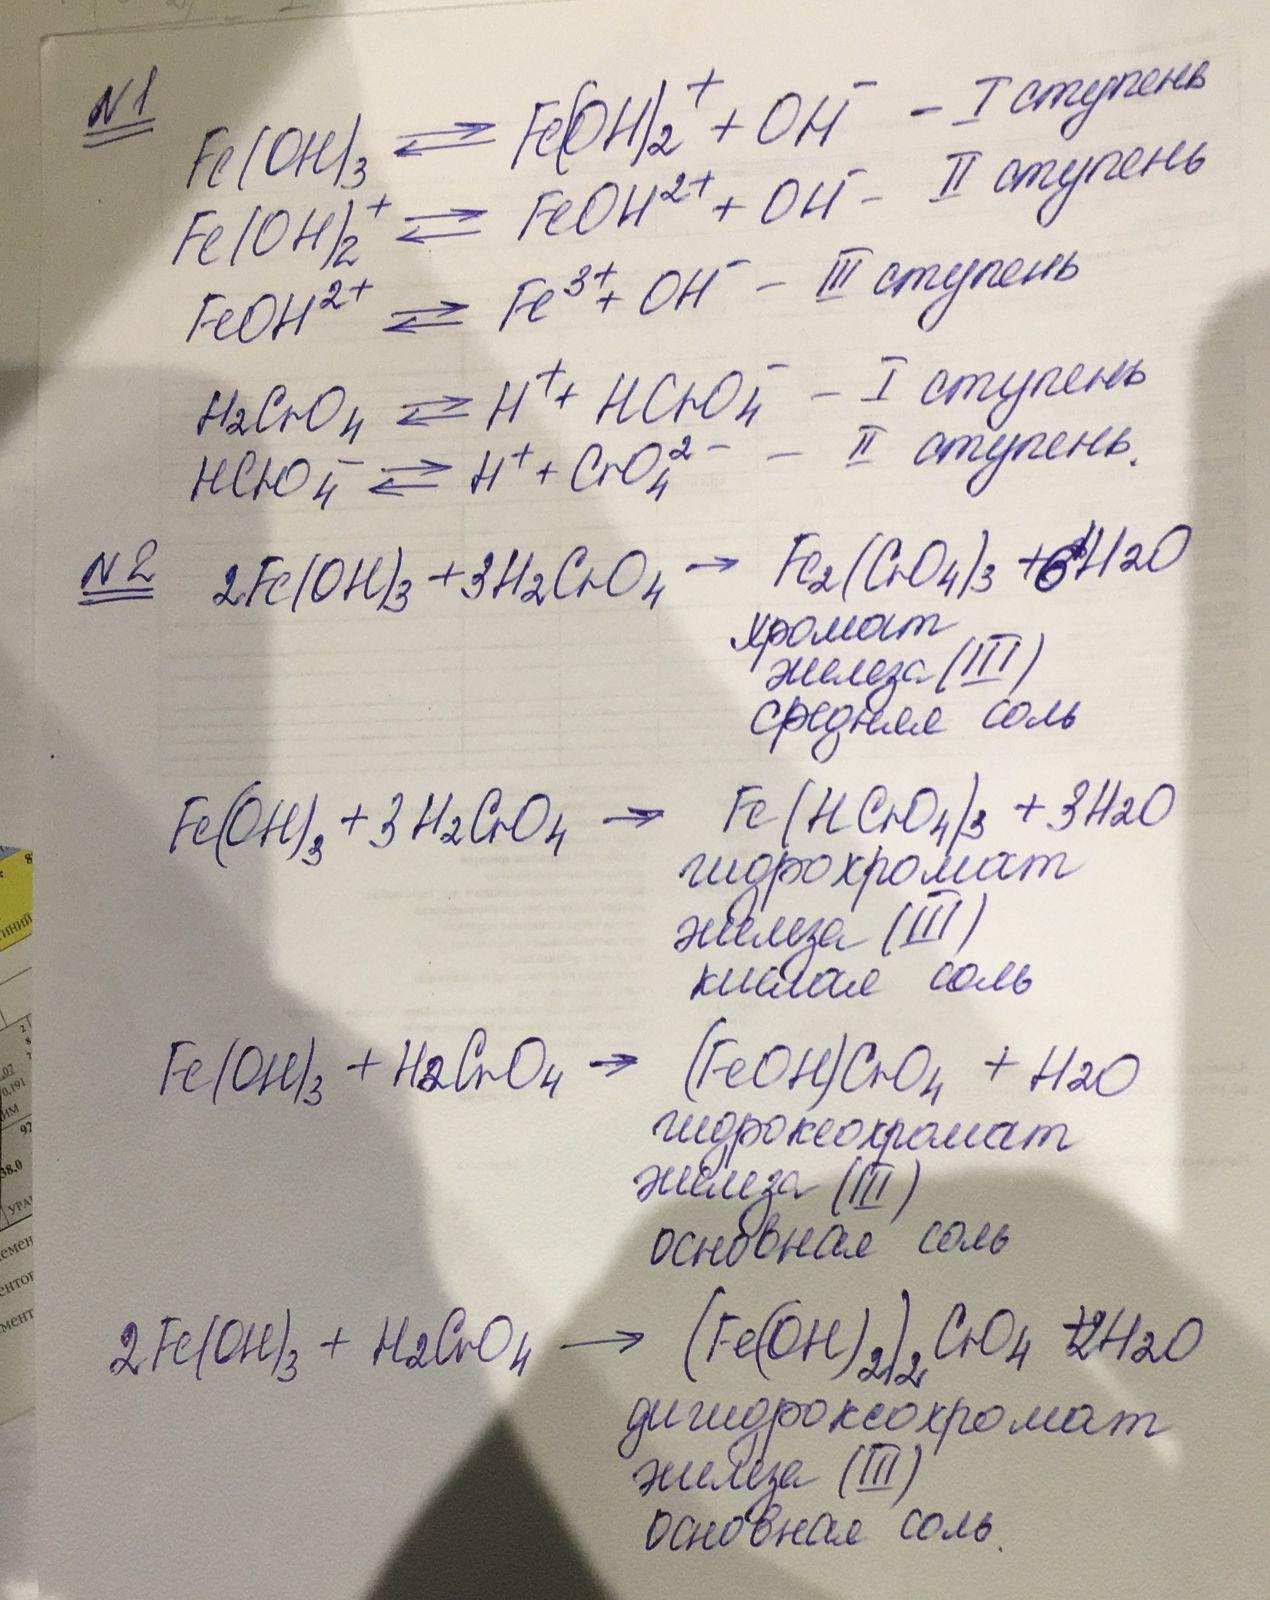 N1
Fe(OH)3 ⇌ Fe(OH)2+ + OH- - I ступень
Fe(OH)2+ ⇌ FeOH2+ + OH- - II ступень
FeOH2+ ⇌ Fe3+ + OH- - III ступень
H2CrO4 ⇌ H+ + HCrO4- - I ступень
HCrO4- ⇌ H+ + CrO4 2- - II ступень.
N2 2Fe(OH)3 + 3H2CrO4 → Fe2(CrO4)3 + 6H2O
хромат
железа (III)
средняя соль
Fe(OH)3 + 3H2CrO4 → Fe(HCrO4)3 + 3H2O
гидрохромат
железа (III)
кислая соль
Fe(OH)3 + H2CrO4 → (FeOH)CrO4 + H2O
гидроксохромат
железа (III)
основная соль
2Fe(OH)3 + H2CrO4 → (Fe(OH)2)2CrO4 + 2H2O
дигидроксохромат
железа (III)
основная соль.
38.0
92
0,191